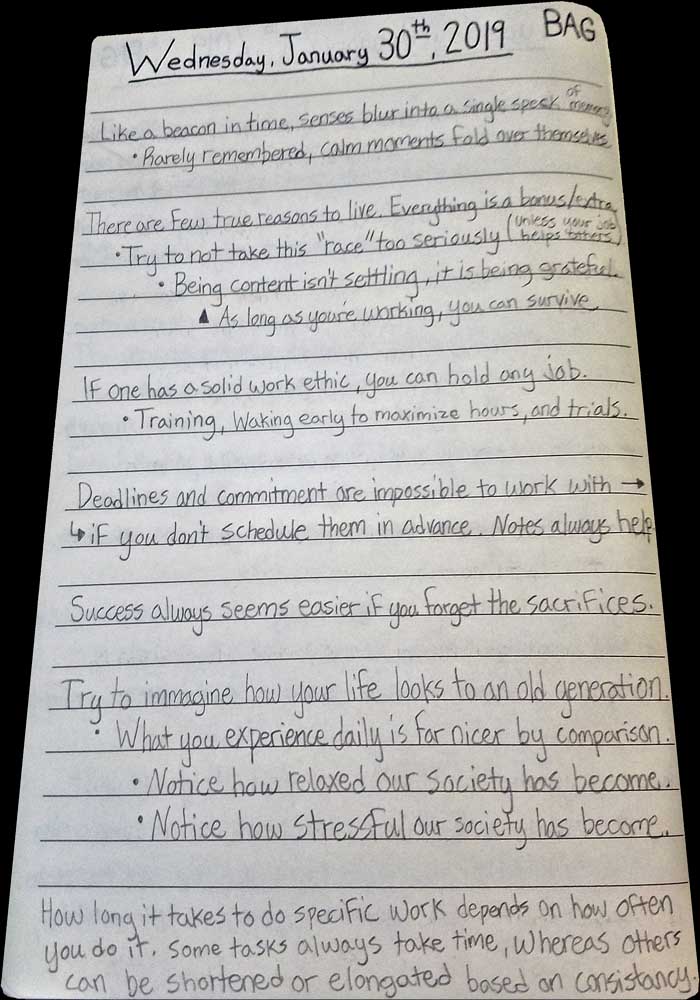 Wednesday, January 30th, 2019 BAG
Like a beacon in time, senses blur into a single speck of memory
• Rarely remembered, calm moments fold over themselves
There are few true reasons to live. Everything is a bonus/extra,
• Try to not take this "race" too seriously (unless your job helps others)
• Being content isn't settling, it is being grateful.
▲ As long as you're working, you can survive
If one has a solid work ethic, you can hold any job.
• Training, Waking early to maximize hours, and trials.
Deadlines and commitment are impossible to work with →
↳ if you don't schedule them in advance. Notes always help
Success always seems easier if you forget the sacrifices.
Try to immagine how your life looks to an old generation.
• What you experience daily is far nicer by comparison.
• Notice how relaxed our society has become.
• Notice how stressful our society has become.
How long it takes to do specific work depends on how often
you do it. Some tasks always take time, whereas others
can be shortened or elongated based on consistancy.